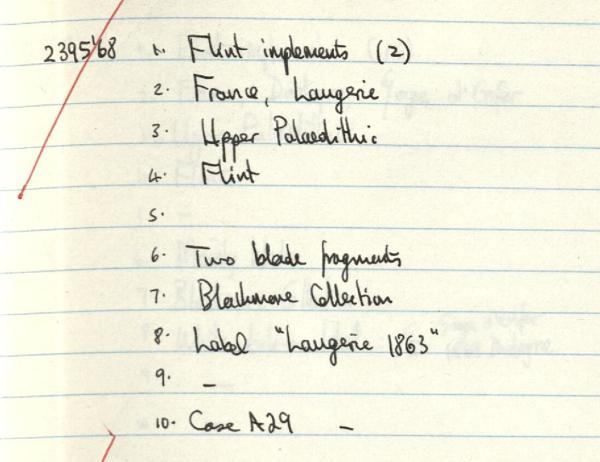 2395'68 1. Flint implements (2)
2. France, Laugerie
3. Upper Palaeolithic
4. Flint
5.
6. Two blade fragments
7. Blackmore Collection
8. Label "Laugerie 1863"
9. –
10. Case A29 –